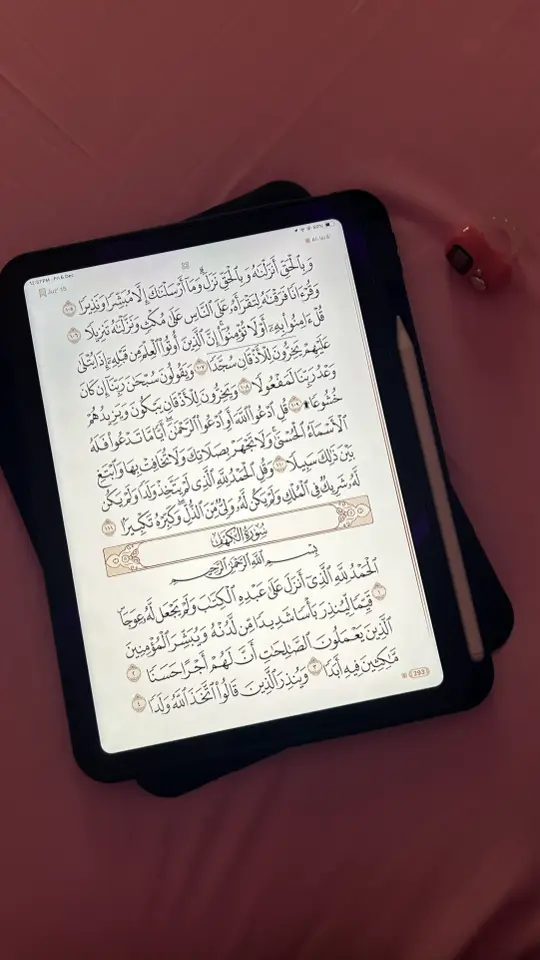 12:57 PM Fri 6 Dec
Juz' 15
وَبِٱلْحَقِّ أَنزَلْنَٰهُ وَبِٱلْحَقِّ نَزَلَ ۗ وَمَآ أَرْسَلْنَٰكَ إِلَّا مُبَشِّرًا وَنَذِيرًا ١٠٥
وَقُرْءَانًا فَرَقْنَٰهُ لِتَقْرَأَهُۥ عَلَى ٱلنَّاسِ عَلَىٰ مُكْثٍ وَنَزَّلْنَٰهُ تَنزِيلًا ١٠٦
قُلْ ءَامِنُوا۟ بِهِۦٓ أَوْ لَا تُؤْمِنُوٓا۟ ۚ إِنَّ ٱلَّذِينَ أُوتُوا۟ ٱلْعِلْمَ مِن قَبْلِهِۦٓ إِذَا يُتْلَىٰ
عَلَيْهِمْ يَخِرُّونَ لِلْأَذْقَانِ سُجَّدًا ١٠٧ وَيَقُولُونَ سُبْحَٰنَ رَبِّنَآ إِن كَانَ
وَعْدُ رَبِّنَا لَمَفْعُولًا ١٠٨ وَيَخِرُّونَ لِلْأَذْقَانِ يَبْكُونَ وَيَزِيدُهُمْ
خُشُوعًا ۩ ١٠٩ قُلِ ٱدْعُوا۟ ٱللَّهَ أَوِ ٱدْعُوا۟ ٱلرَّحْمَٰنَ ۖ أَيًّا مَّا تَدْعُوا۟ فَلَهُ
ٱلْأَسْمَآءُ ٱلْحُسْنَىٰ ۚ وَلَا تَجْهَرْ بِصَلَاتِكَ وَلَا تُخَافِتْ بِهَا وَٱبْتَغِ
بَيْنَ ذَٰلِكَ سَبِيلًا ١١٠ وَقُلِ ٱلْحَمْدُ لِلَّهِ ٱلَّذِى لَمْ يَتَّخِذْ وَلَدًا وَلَمْ يَكُن
لَّهُۥ شَرِيكٌ فِى ٱلْمُلْكِ وَلَمْ يَكُن لَّهُۥ وَلِىٌّ مِّنَ ٱلذُّلِّ ۖ وَكَبِّرْهُ تَكْبِيرًۢا ١١١
سُورَةُ الكَهْفِ
بِسْمِ ٱللَّهِ ٱلرَّحْمَٰنِ ٱلرَّحِيمِ
ٱلْحَمْدُ لِلَّهِ ٱلَّذِىٓ أَنزَلَ عَلَىٰ عَبْدِهِ ٱلْكِتَٰبَ وَلَمْ يَجْعَل لَّهُۥ عِوَجَا ١
قَيِّمًا لِّيُنذِرَ بَأْسًا شَدِيدًا مِّن لَّدُنْهُ وَيُبَشِّرَ ٱلْمُؤْمِنِينَ
ٱلَّذِينَ يَعْمَلُونَ ٱلصَّٰلِحَٰتِ أَنَّ لَهُمْ أَجْرًا حَسَنًا ٢
مَّٰكِثِينَ فِيهِ أَبَدًا ٣ وَيُنذِرَ ٱلَّذِينَ قَالُوا۟ ٱتَّخَذَ ٱللَّهُ وَلَدًا ٤
293